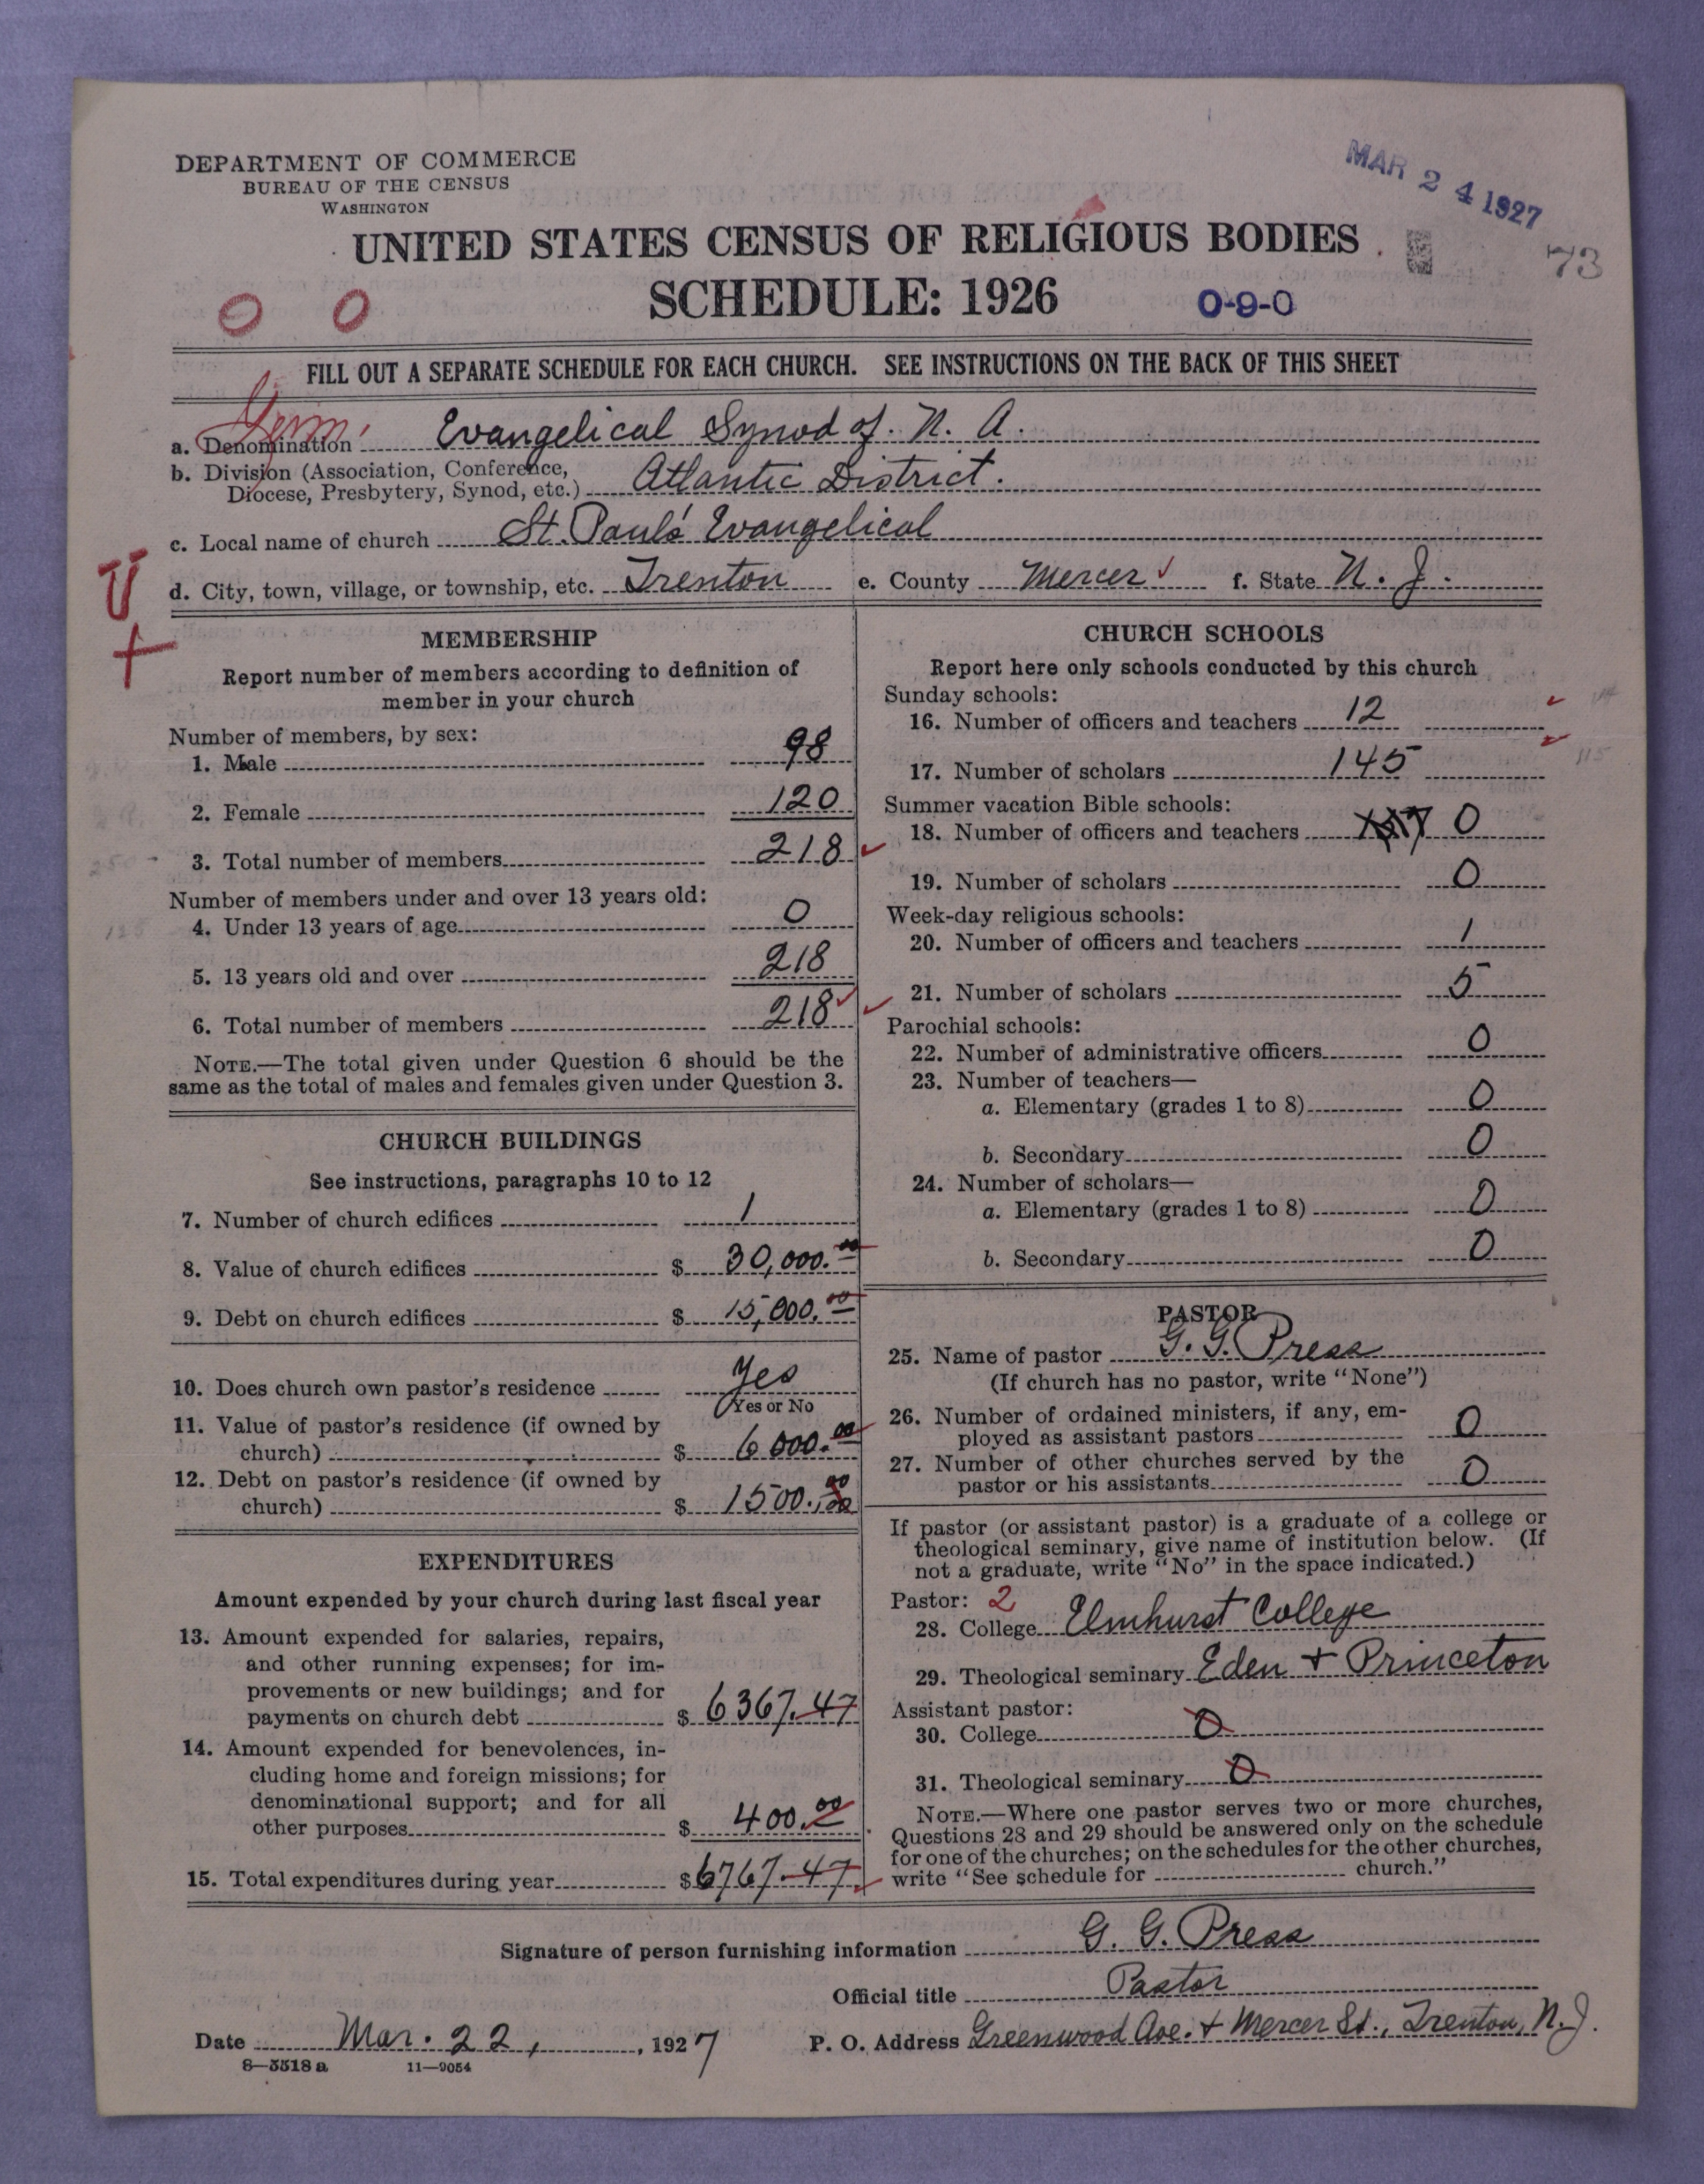 DEPARTMENT OF COMMERCE
BUREAU OF THE CENSUS
WASHINGTON
MAR 24 1927
73
UNITED STATES CENSUS OF RELIGIOUS BODIES
SCHEDULE: 1926
0-9-0
0 0
FILL OUT A SEPARATE SCHEDULE FOR EACH CHURCH. SEE INSTRUCTIONS ON THE BACK OF THIS SHEET
Germ.
a. Denomination Evangelical Synod of N. A.
b. Division (Association, Conference,
Diocese, Presbytery, Synod, etc.) Atlantic District.
c. Local name of church St. Paul's Evangelical
d. City, town, village, or township, etc. Trenton e. County Mercer f. State N. J.
MEMBERSHIP
Report number of members according to definition of
member in your church
Number of members, by sex:
1. Male 98
2. Female 120
3. Total number of members 218
Number of members under and over 13 years old:
4. Under 13 years of age 0
5. 13 years old and over 218
6. Total number of members 218
NOTE.—The total given under Question 6 should be the
same as the total of males and females given under Question 3.
CHURCH BUILDINGS
See instructions, paragraphs 10 to 12
7. Number of church edifices 1
8. Value of church edifices $ 30,000.00
9. Debt on church edifices $ 15,000.00
10. Does church own pastor's residence Yes
Yes or No
11. Value of pastor's residence (if owned by
church) $ 6000.00
12. Debt on pastor's residence (if owned by
church) $ 1500.00
EXPENDITURES
Amount expended by your church during last fiscal year
13. Amount expended for salaries, repairs,
and other running expenses; for im-
provements or new buildings; and for
payments on church debt $ 6367.47
14. Amount expended for benevolences, in-
cluding home and foreign missions; for
denominational support; and for all
other purposes $ 400.00
15. Total expenditures during year $ 6767.47
CHURCH SCHOOLS
Report here only schools conducted by this church
Sunday schools:
16. Number of officers and teachers 12
17. Number of scholars 145
Summer vacation Bible schools:
18. Number of officers and teachers 0
19. Number of scholars 0
Week-day religious schools:
20. Number of officers and teachers 1
21. Number of scholars 5
Parochial schools:
22. Number of administrative officers 0
23. Number of teachers—
a. Elementary (grades 1 to 8) 0
b. Secondary 0
24. Number of scholars—
a. Elementary (grades 1 to 8) 0
b. Secondary 0
PASTOR
25. Name of pastor G. G. Press
(If church has no pastor, write "None")
26. Number of ordained ministers, if any, em-
ployed as assistant pastors 0
27. Number of other churches served by the
pastor or his assistants 0
If pastor (or assistant pastor) is a graduate of a college or
theological seminary, give name of institution below. (If
not a graduate, write "No" in the space indicated.)
Pastor: 2
28. College Elmhurst College
29. Theological seminary Eden + Princeton
Assistant pastor:
30. College 0
31. Theological seminary 0
NOTE.—Where one pastor serves two or more churches,
Questions 28 and 29 should be answered only on the schedule
for one of the churches; on the schedules for the other churches,
write "See schedule for church."
Signature of person furnishing information G. G. Press
Official title Pastor
Date Mar. 22, 1927 P. O. Address Greenwood Ave. + Mercer St., Trenton, N.J.
8—5518a 11—9054